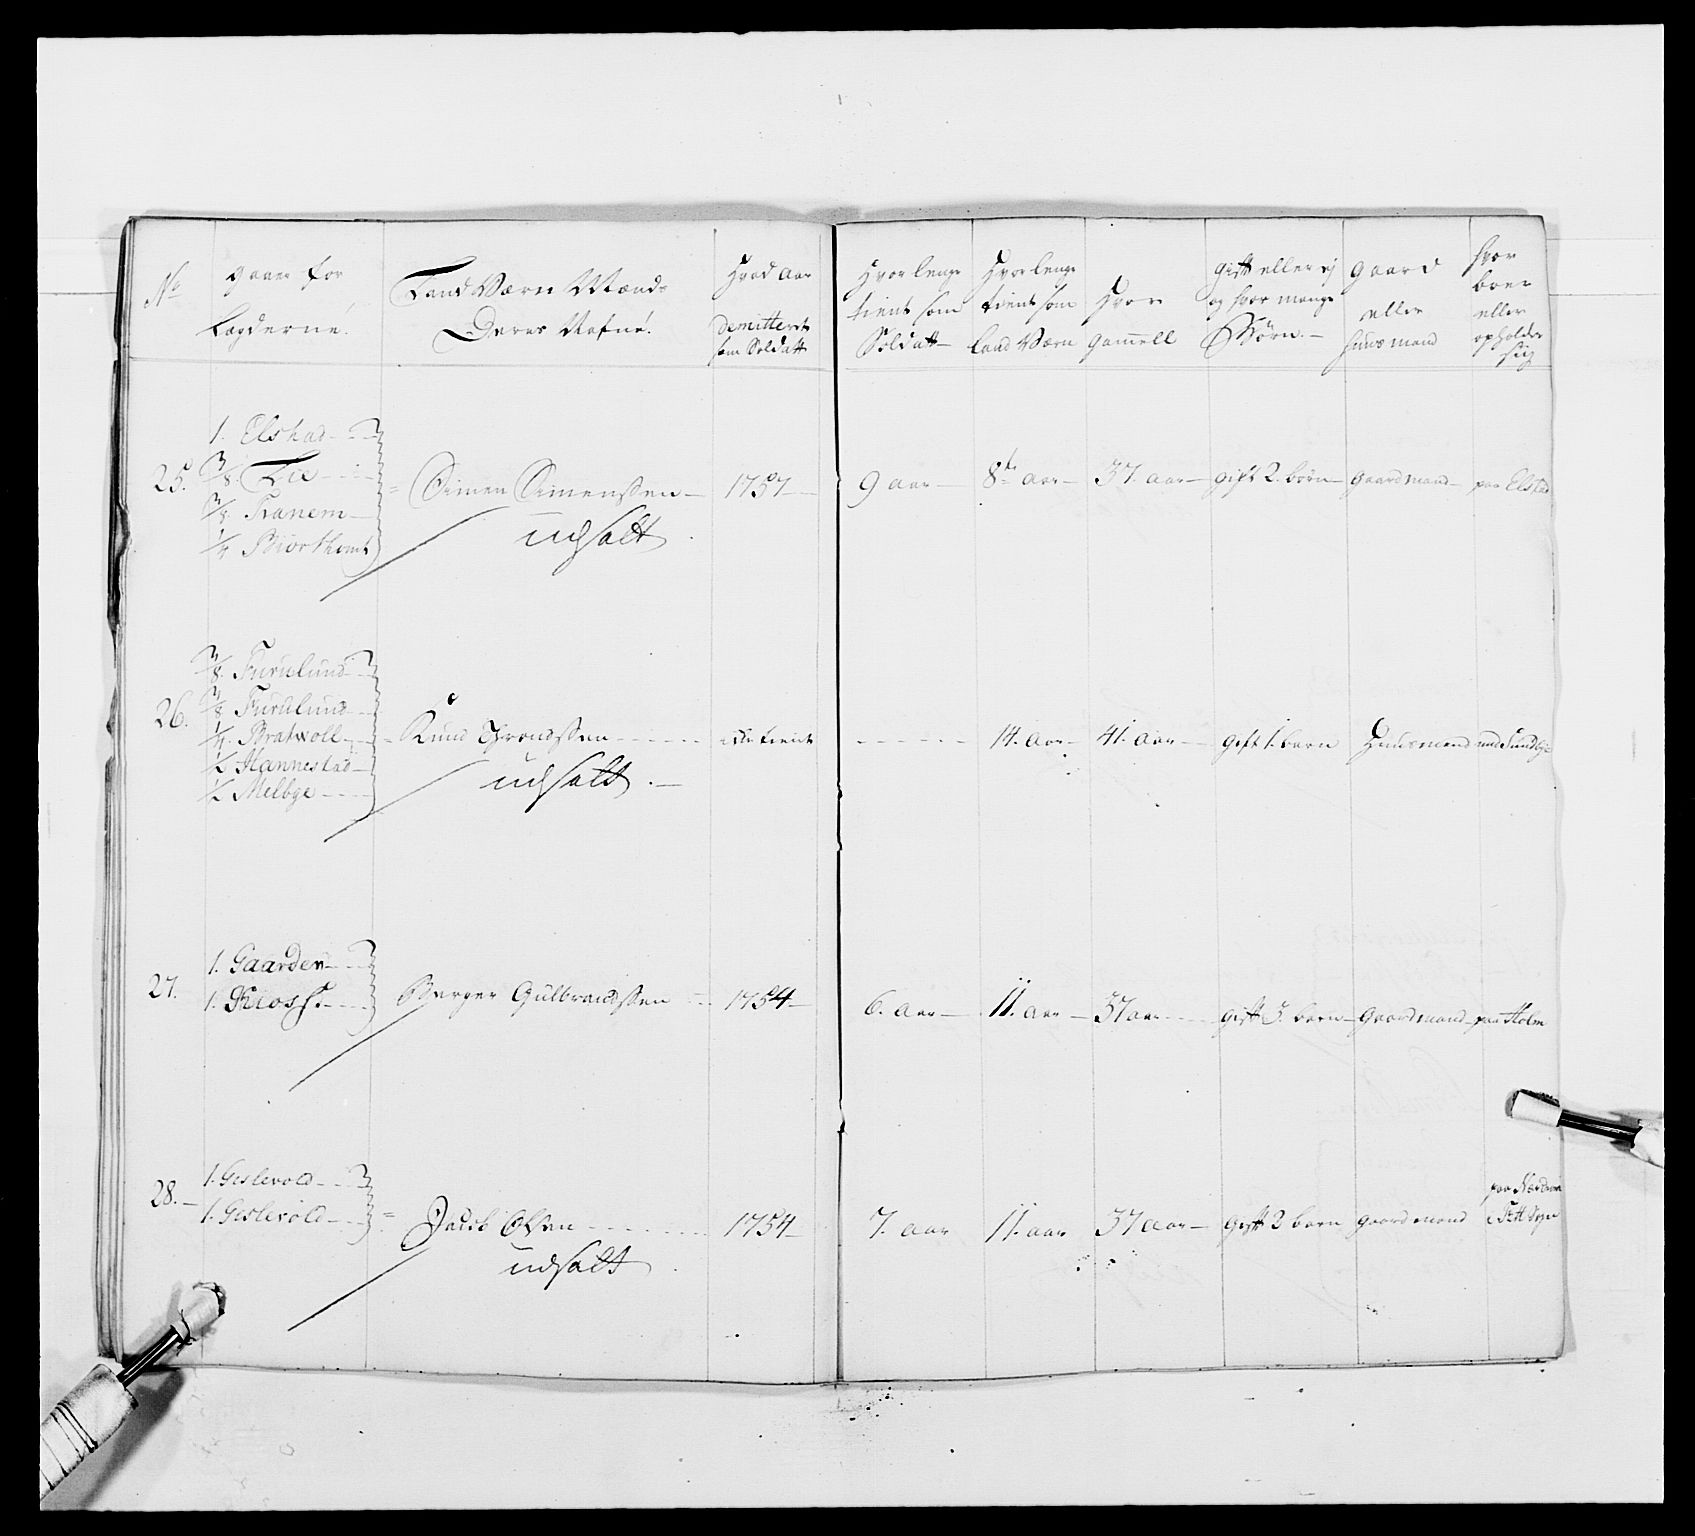 No
gaarer for
Lægderne.
Land Værn Mænds
Deres Nafne.
Hvad Aar
demitteret
som Soldatt
Hvor lenge
tient som
Soldatt
Hvor lenge
tient som
Land Værn
Hvor
gamell
gift eller ej
og hvor mange
Børn.
gaard
eller
huusmand
hvor
boer
eller
opholder
sig
25.
1. Elstad
7/8. Lie
7/8. Tranem
1/4 Biortkomt
Simen Simenssen
udsatt
1757
9 aar
8te aar
37. aar
gift 2. børn
gaardmand
paa Elstad
26.
7/8. Furulund
7/8 Furulund
1/4. Bratwoll
1/2 Hannestad
1/2 Melbye
Knud Throndssen
udsatt.
icke tient
14. aar
41. aar
gift 1. barn
Huusmand
27.
1. Gaarder
1. Kioss.
Berger Gulbrandssen
1754
6. aar
11. aar
37 aar
gift 5. barn
gaardmand
paa Holm
28.
1. Geslevold
1. Geslevold
Jacob Olsen
udsatt
1754
7. aar
11. aar
37 aar
gift 3 barn
gaardmand